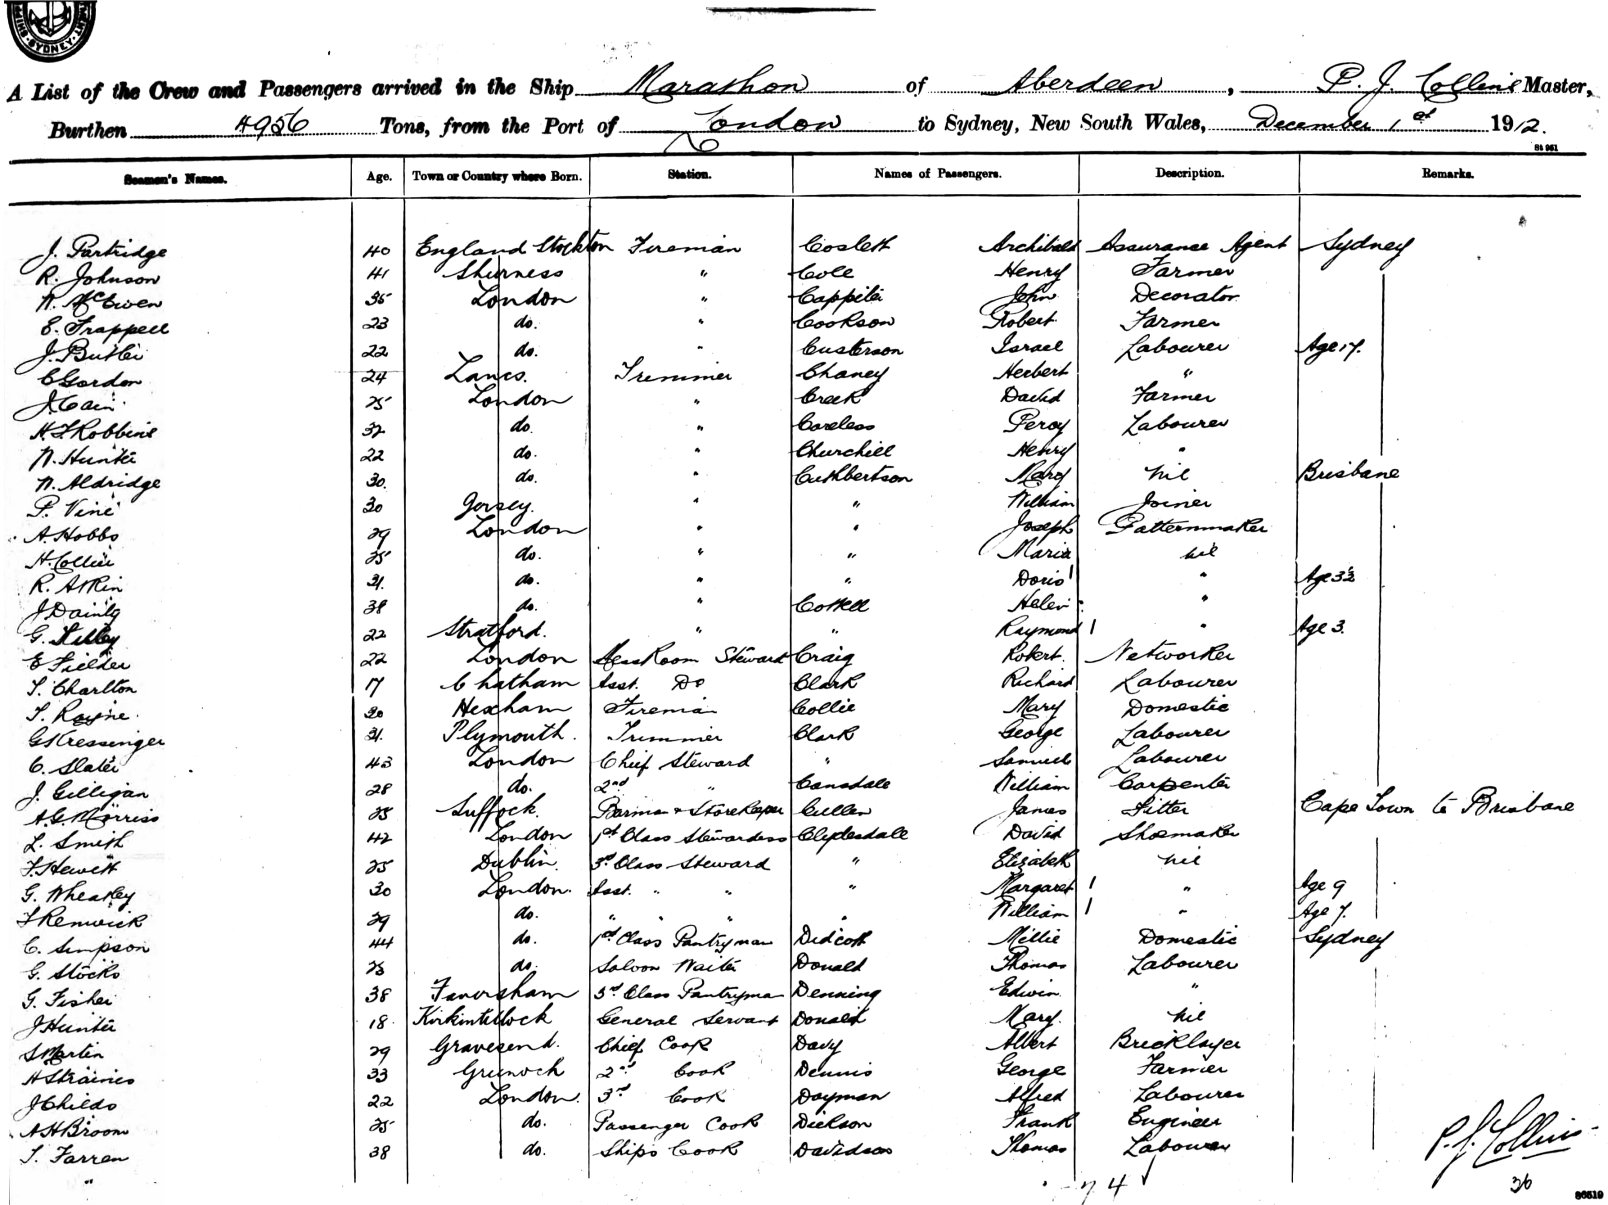 SYDNEY
A List of the Crew and Passengers arrived in the Ship Marathon of Aberdeen, P. J. Collins Master,
Burthen 4956 Tons, from the Port of London to Sydney, New South Wales, December 1st 1912.
St 951
Seamen's Names. Age. Town or Country where Born. Station. Names of Passengers. Description. Remarks.
J. Partridge 40 England Stockton Fireman Cosleth Archibald Assurance Agent Sydney
R. Johnson 41 Sheerness " Cole Henry Farmer
W. McEwen 35 London " John Decorator
E. Frappell 23 do. " Cookson Robert Farmer
J. Butler 22 do. " Custerson Israel Labourer Age 17.
C Gordon 24 Lancs. Trimmer Chaney Herbert "
J. Cain 25 London " Creek David Farmer
H. F. Robbins 32 do. " Careless Percy Labourer
W. Hunter 22 do. " Churchill Henry "
W. Aldridge 30. do. " Cuthbertson Mary nil Brisbane
P. Vine 30 Jersey. " " William Joiner
A. Hobbs 29 London " " Joseph Patternmaker
H. Collier 25 do. " " Maria nil
R. Atkin 31. do. " " Doris 1 " Age 3½
J Dainty 38 do. " Cottell Helen "
G. 22 Stratford. " " Raymond 1 " Age 3.
E Fielder 22 London Mess Room Steward Craig Robert. Networker
T. Charlton 17 Chatham Asst. Do Clark Richard Labourer
T. Rayne 30 Hexham Fireman Collie Mary Domestic
G Kressinger 31. Plymouth. Trimmer Clark George Labourer
C. Slater 43 London Chief Steward " Samuel Labourer
J. Gilligan 28 do. 2nd " Cansdale William Carpenter
A. G. Morriss 25 Suffock. Barman & Storekeeper Cullen James Fitter Cape Town to Brisbane
L. Smith 42 London 1st Class Stewardess Clydesdale David Shoemaker
F. Hewitt 25 Dublin. 3rd Class Steward " Elizabeth nil
G. Wheatley 30 London. Asst. " " " Margaret 1 " Age 9
F Renwick 29 do. " " " " William 1 " Age 7.
C. Simpson 44 do. 1st Class Pantryman Didcott Millie Domestic Sydney
G. Stocks 23 do. Saloon Waiter Donald Thomas Labourer
G. Fisher 38 Faversham 3rd Class Pantryman Denning Edwin "
J Hunter 18 Kirkintillock General Servant Donald Mary. nil
S Martin 29 Gravesend. Chief Cook Davy Albert Bricklayer
H Strainis 33 Greenock 2nd Cook Dennis George Farmer
J Childs 22 London. 3rd Cook Dayman Alfred Labourer
A H Broom 25 do. Passenger Cook Dickson Frank Engineer
T. Farren 38 do. Ships Cook Davidson Thomas Labourer
P. J. Collins
74
36
86519